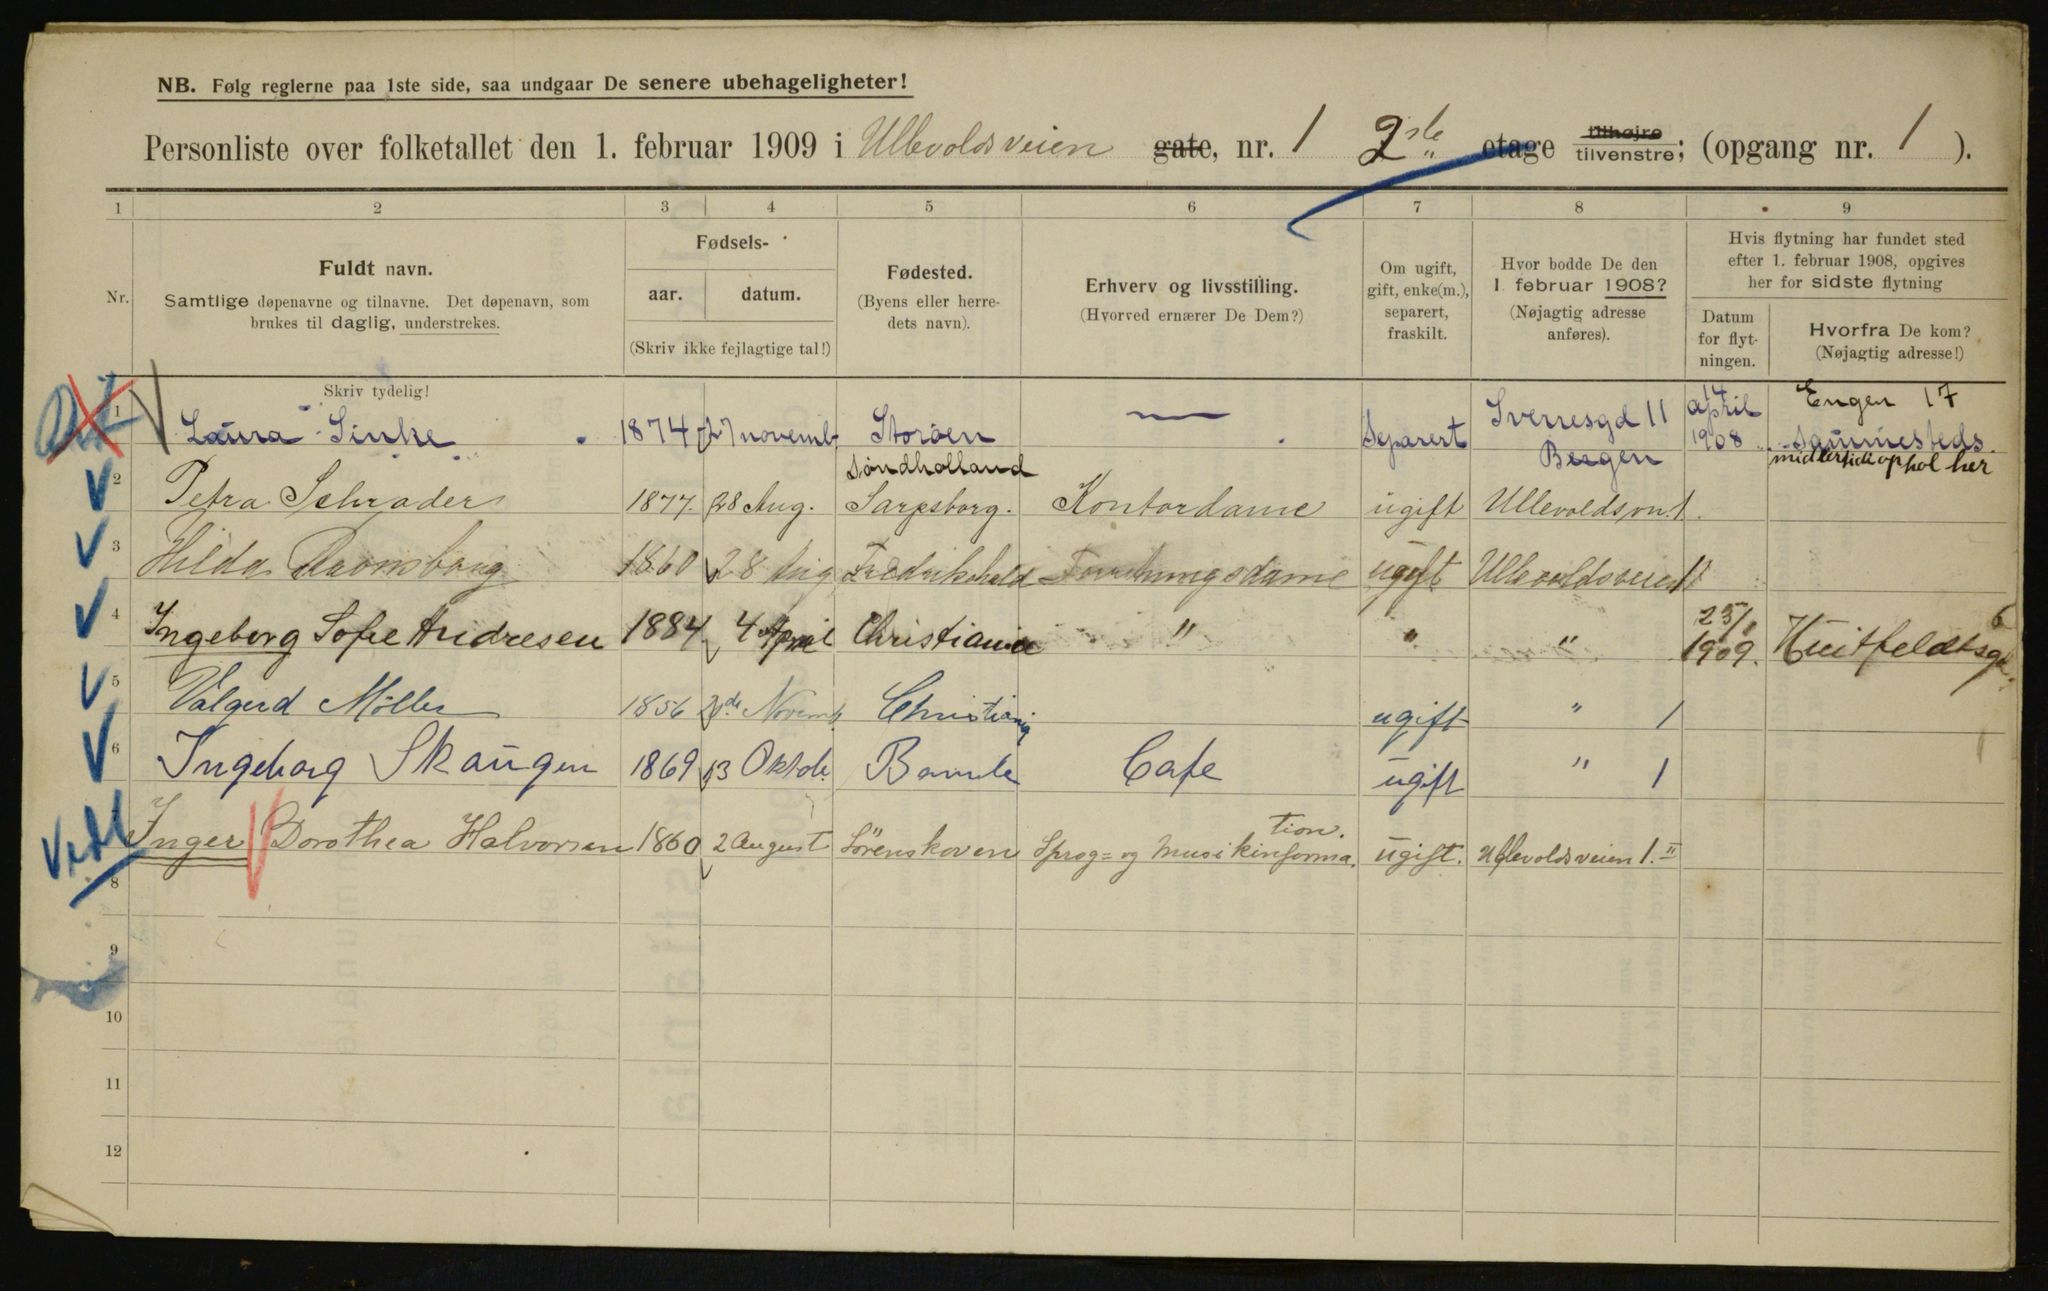 NB. Følg reglerne paa 1ste side, saa undgaar De senere ubehageligheter!
Personliste over folketallet den 1. februar 1909 i Ullevoldsveien gate, nr. 1 2 etage tilhøjre tilvenstre; (opgang nr. 1 ).
1 2 3 4 5 6 7 8 9
Nr.
Fuldt navn.
Samtlige døpenavne og tilnavne. Det døpenavn, som
brukes til daglig, understrekes.
Skriv tydelig!
Fødsels-
aar. datum.
(Skriv ikke fejlagtige tal!)
Fødested.
(Byens eller herre-
dets navn).
Erhverv og livsstilling.
(Hvorved ernærer De Dem?)
Om ugift,
gift, enke(m.),
separert,
fraskilt.
Hvor bodde De den
1. februar 1908?
(Nøjagtig adresse
anføres).
Hvis flytning har fundet sted
efter 1. februar 1908, opgives
her for sidste flytning
Datum
for flyt-
ningen.
Hvorfra De kom?
(Nøjagtig adresse!)
1 Laura Sinke 1874 27 novemb. Storöen Söndholland — Separert Sverresgd 11 Bergen 14 april 1908 Engen 17 Sammesteds. midlertidig ophol her
2 Petra Schrader 1877. 28 Aug. Sarpsborg. Kontordame ugift Ullevoldsvn. 1.
3 Hilda 1860 28 Aug Fredrikshald Forretningsdame ugift Ullevoldsveien 1
4 Ingeborg Sofie Andresen 1884 4 April Christiania " " " 25/1 1909. Huitfeldtsgt. 6
5 Valgerd Möller 1856 Novemb. Christiania ugift " 1
6 Ingeborg Skaugen 1869 13 Oktob. Bamle Cafe ugift " 1
7 Inger Dorothea Halvorsen 1860 2 August Sörenskoven Sprog= og Musikinformation. ugift. Ullevoldsveien 1. II
8
9
10
11
12